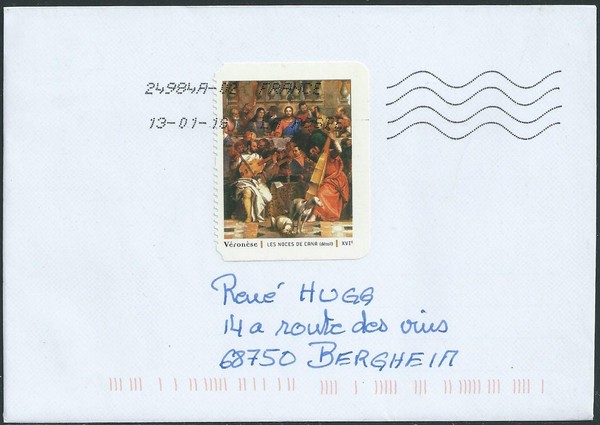 24984A-02 FRANCE
13-01-16 POSTE
Véronèse | LES NOCES DE CANA (détail) | XVIᵉ
René HUGG
14a route des vins
68750 BERGHEIM